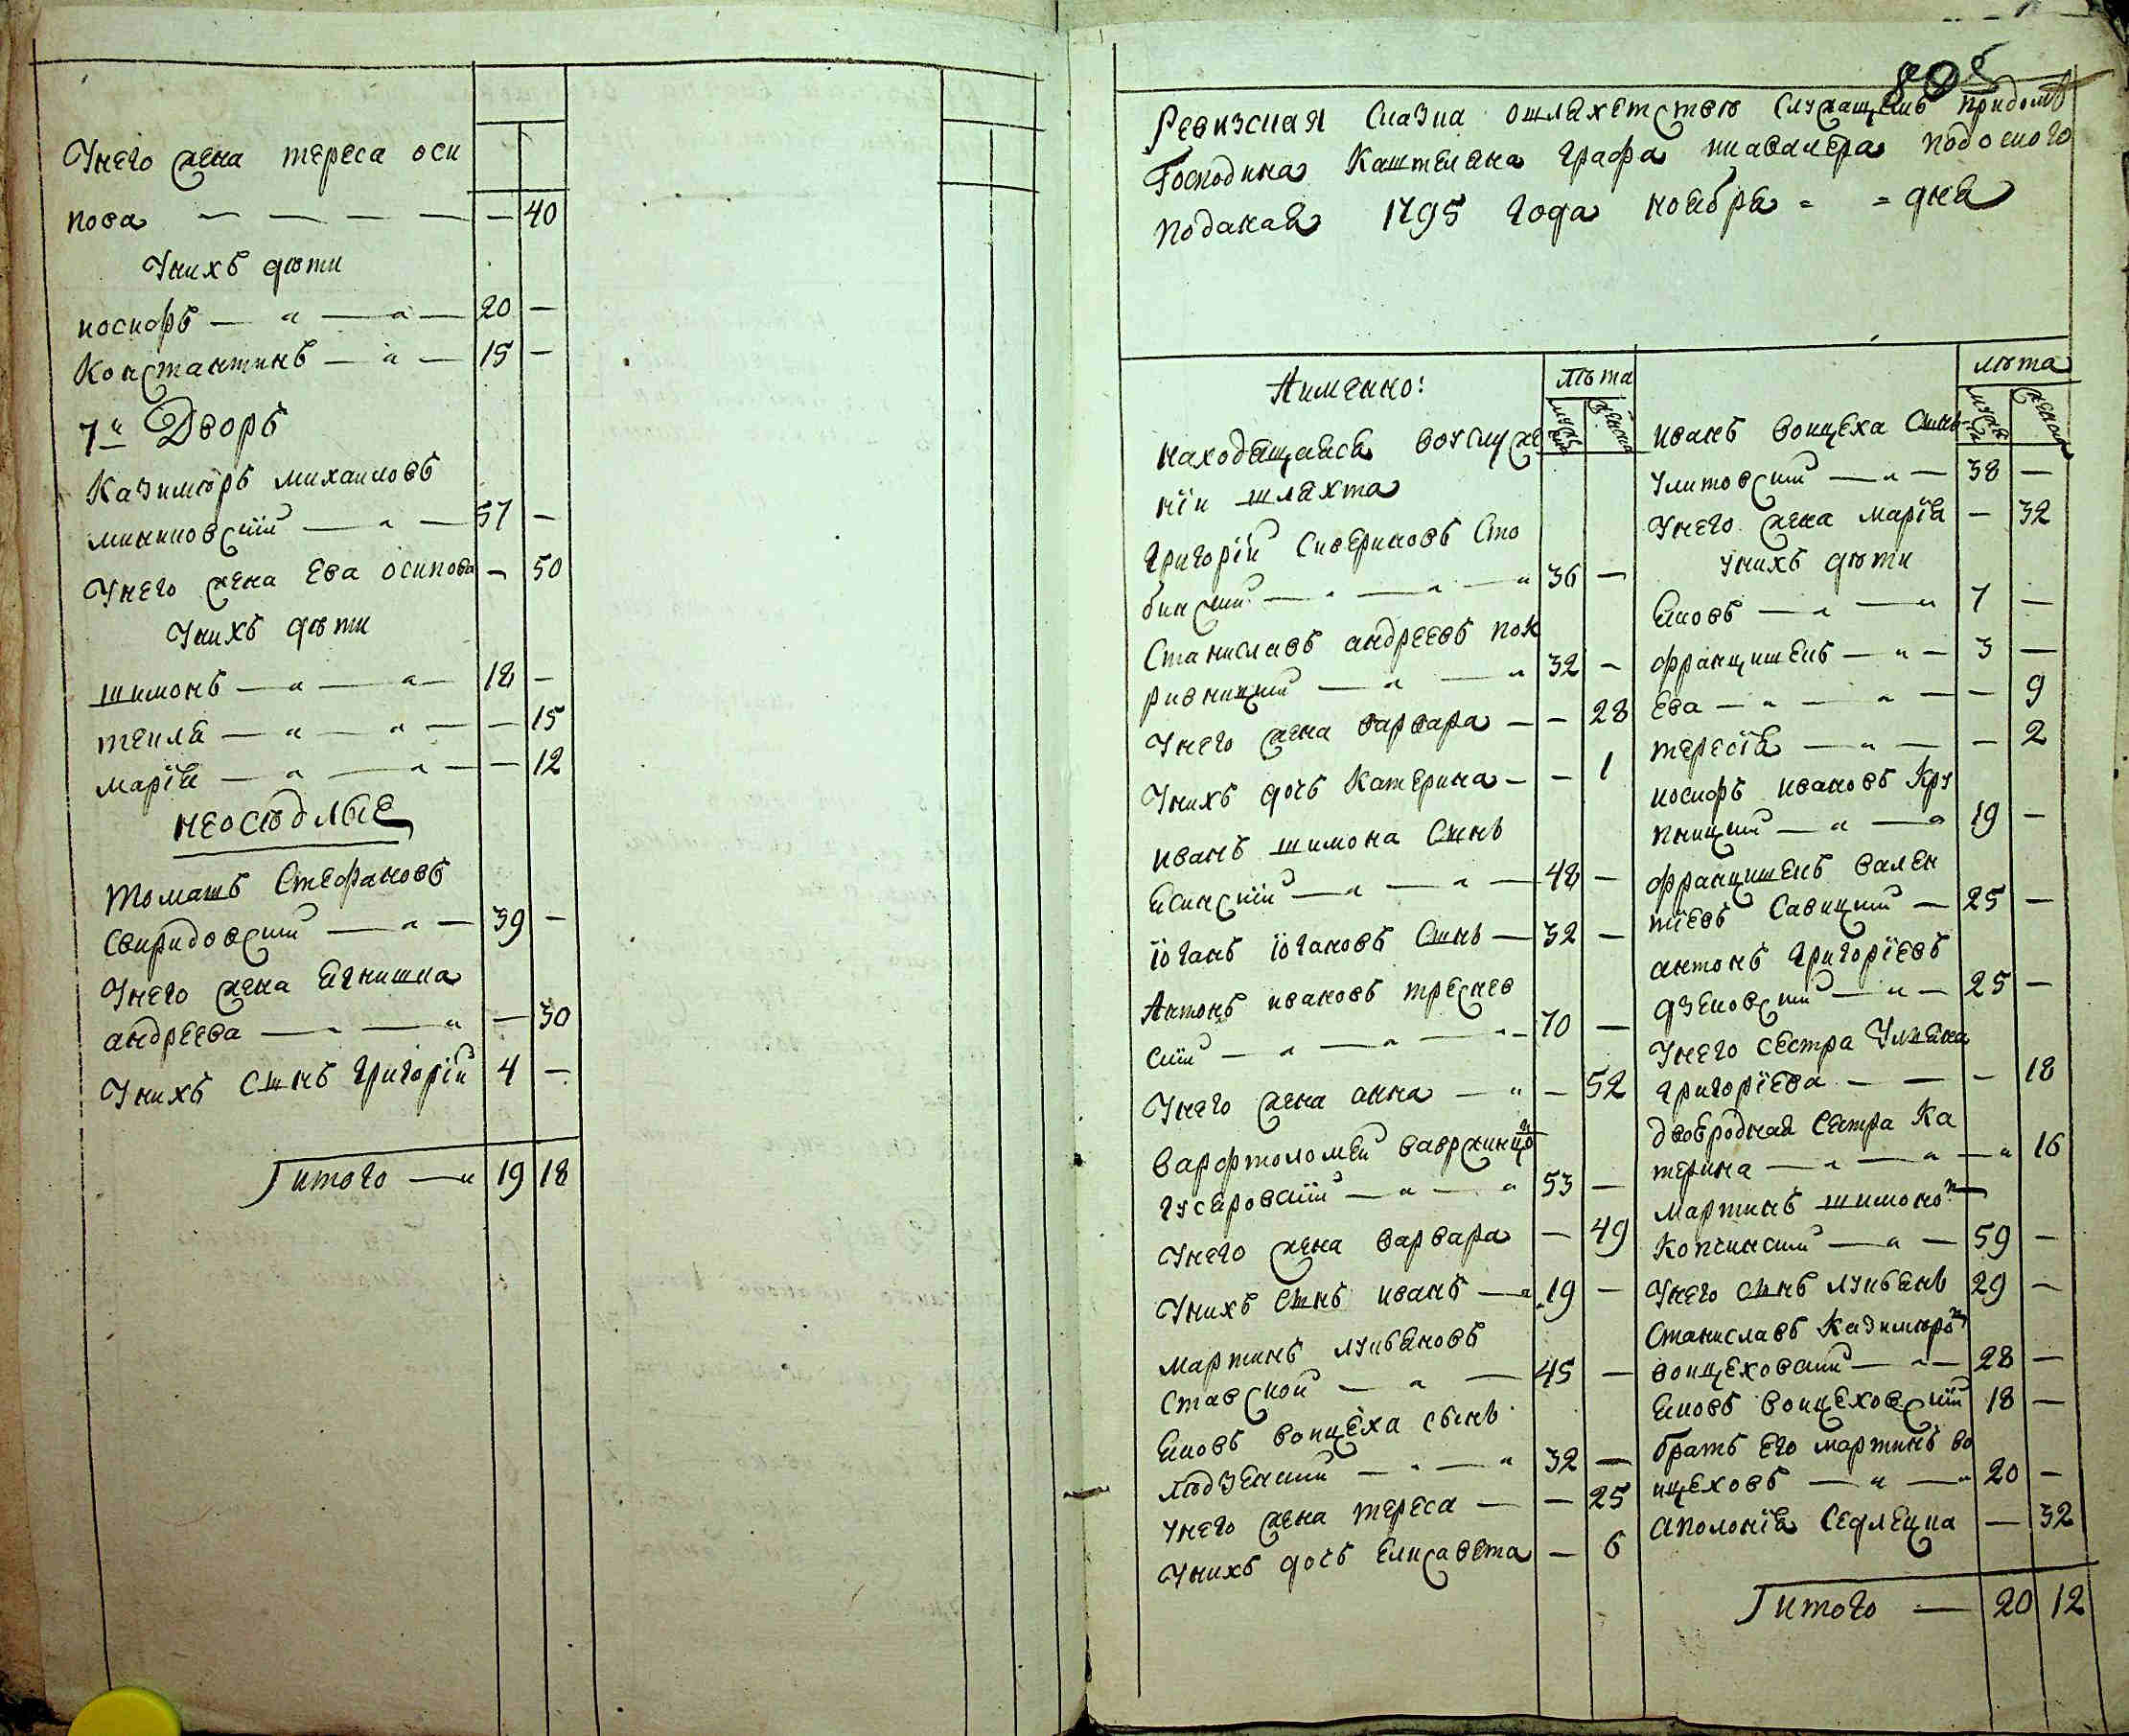 Унего жена тереса оси
пова — — — — — 40
Унихъ дѣти
иосифъ — „ — „ — 20 —
Константинъ — „ — 15 —
7й Дворъ
Казимѣръ михаиловъ
миниовскїй — „ — 57 —
Унего жена Ева осипова — 50
Унихъ дѣти
шимонъ — „ — „ — 18 —
текля — „ — „ — — 15
марїя — „ — „ — — 12
неосѣдлые
Томашъ Стефановъ
Свиридовский — „ — 39 —
Унего жена Ягнишка
андреева — „ — „ — 30
Унихъ сынъ григорїй 4 —
Итого — „ 19 18
805
Ревизская Сказка ошляхетствѣ служащемъ придомѣ
Господина Каштеляна графа кавалера
поданая 1795 года ноября = = дня
Аимянно: лѣта
находящаяся воуслуже
нїи шляхта
Григорїй Сивериновъ Сто
бинский — „ — „ — „ 36 —
Станиславъ андреевъ пок
ривницкий — „ — „ 32 —
Унего жена варвара — — 28
Унихъ дочь Катерина — — 1
иванъ шимона Сынъ
ясинскїй — „ — „ — 48 —
їоганъ їогановъ Сынъ — 32 —
Антонъ ивановъ тресчев
скїй — „ — „ — „ — 70 —
Унего жена анна — „ — 52
варфтоломей
гусаровский — „ — „ 53 —
Унего жена варвара — 49
Унихъ Сынъ иванъ — „ 19 —
мартинъ лукьяновъ
Ставской — „ — 45 —
яковъ воицеха сынъ
людзенский — „ — „ 32 —
Унего жена тереса — — 25
Унихъ дочъ Елисавета — 6
лѣта
иванъ воицеха Сынъ
улитовский — „ — 38 —
Унего жена марїя — 32
унихъ дѣти
яковъ — „ — „ 7 —
францишекъ — „ — 3 —
Ева — „ — „ — — 9
тересїя — „ — — 2
иосифъ ивановъ Кру
пницкий — „ — „ 19 —
францишекъ вален
тїевъ Савицкий — 25 —
антонъ григорїевъ
дзековский — „ — 25 —
Унего сестра
григорїева — — — 18
двоѣродная сестра Ка
терина — „ — „ — „ 16
мартинъ шимоно
Копчинский — „ — 59 —
Унего сынъ лукьянъ 29 —
Станиславъ Казимѣро
воицеховский — „ — 28 —
яковъ воицеховскїй 18 —
братъ Его мартинъ во
ицеховъ — „ — „ 20 —
аполонїя Седлецка — 32
Итого — 20 12